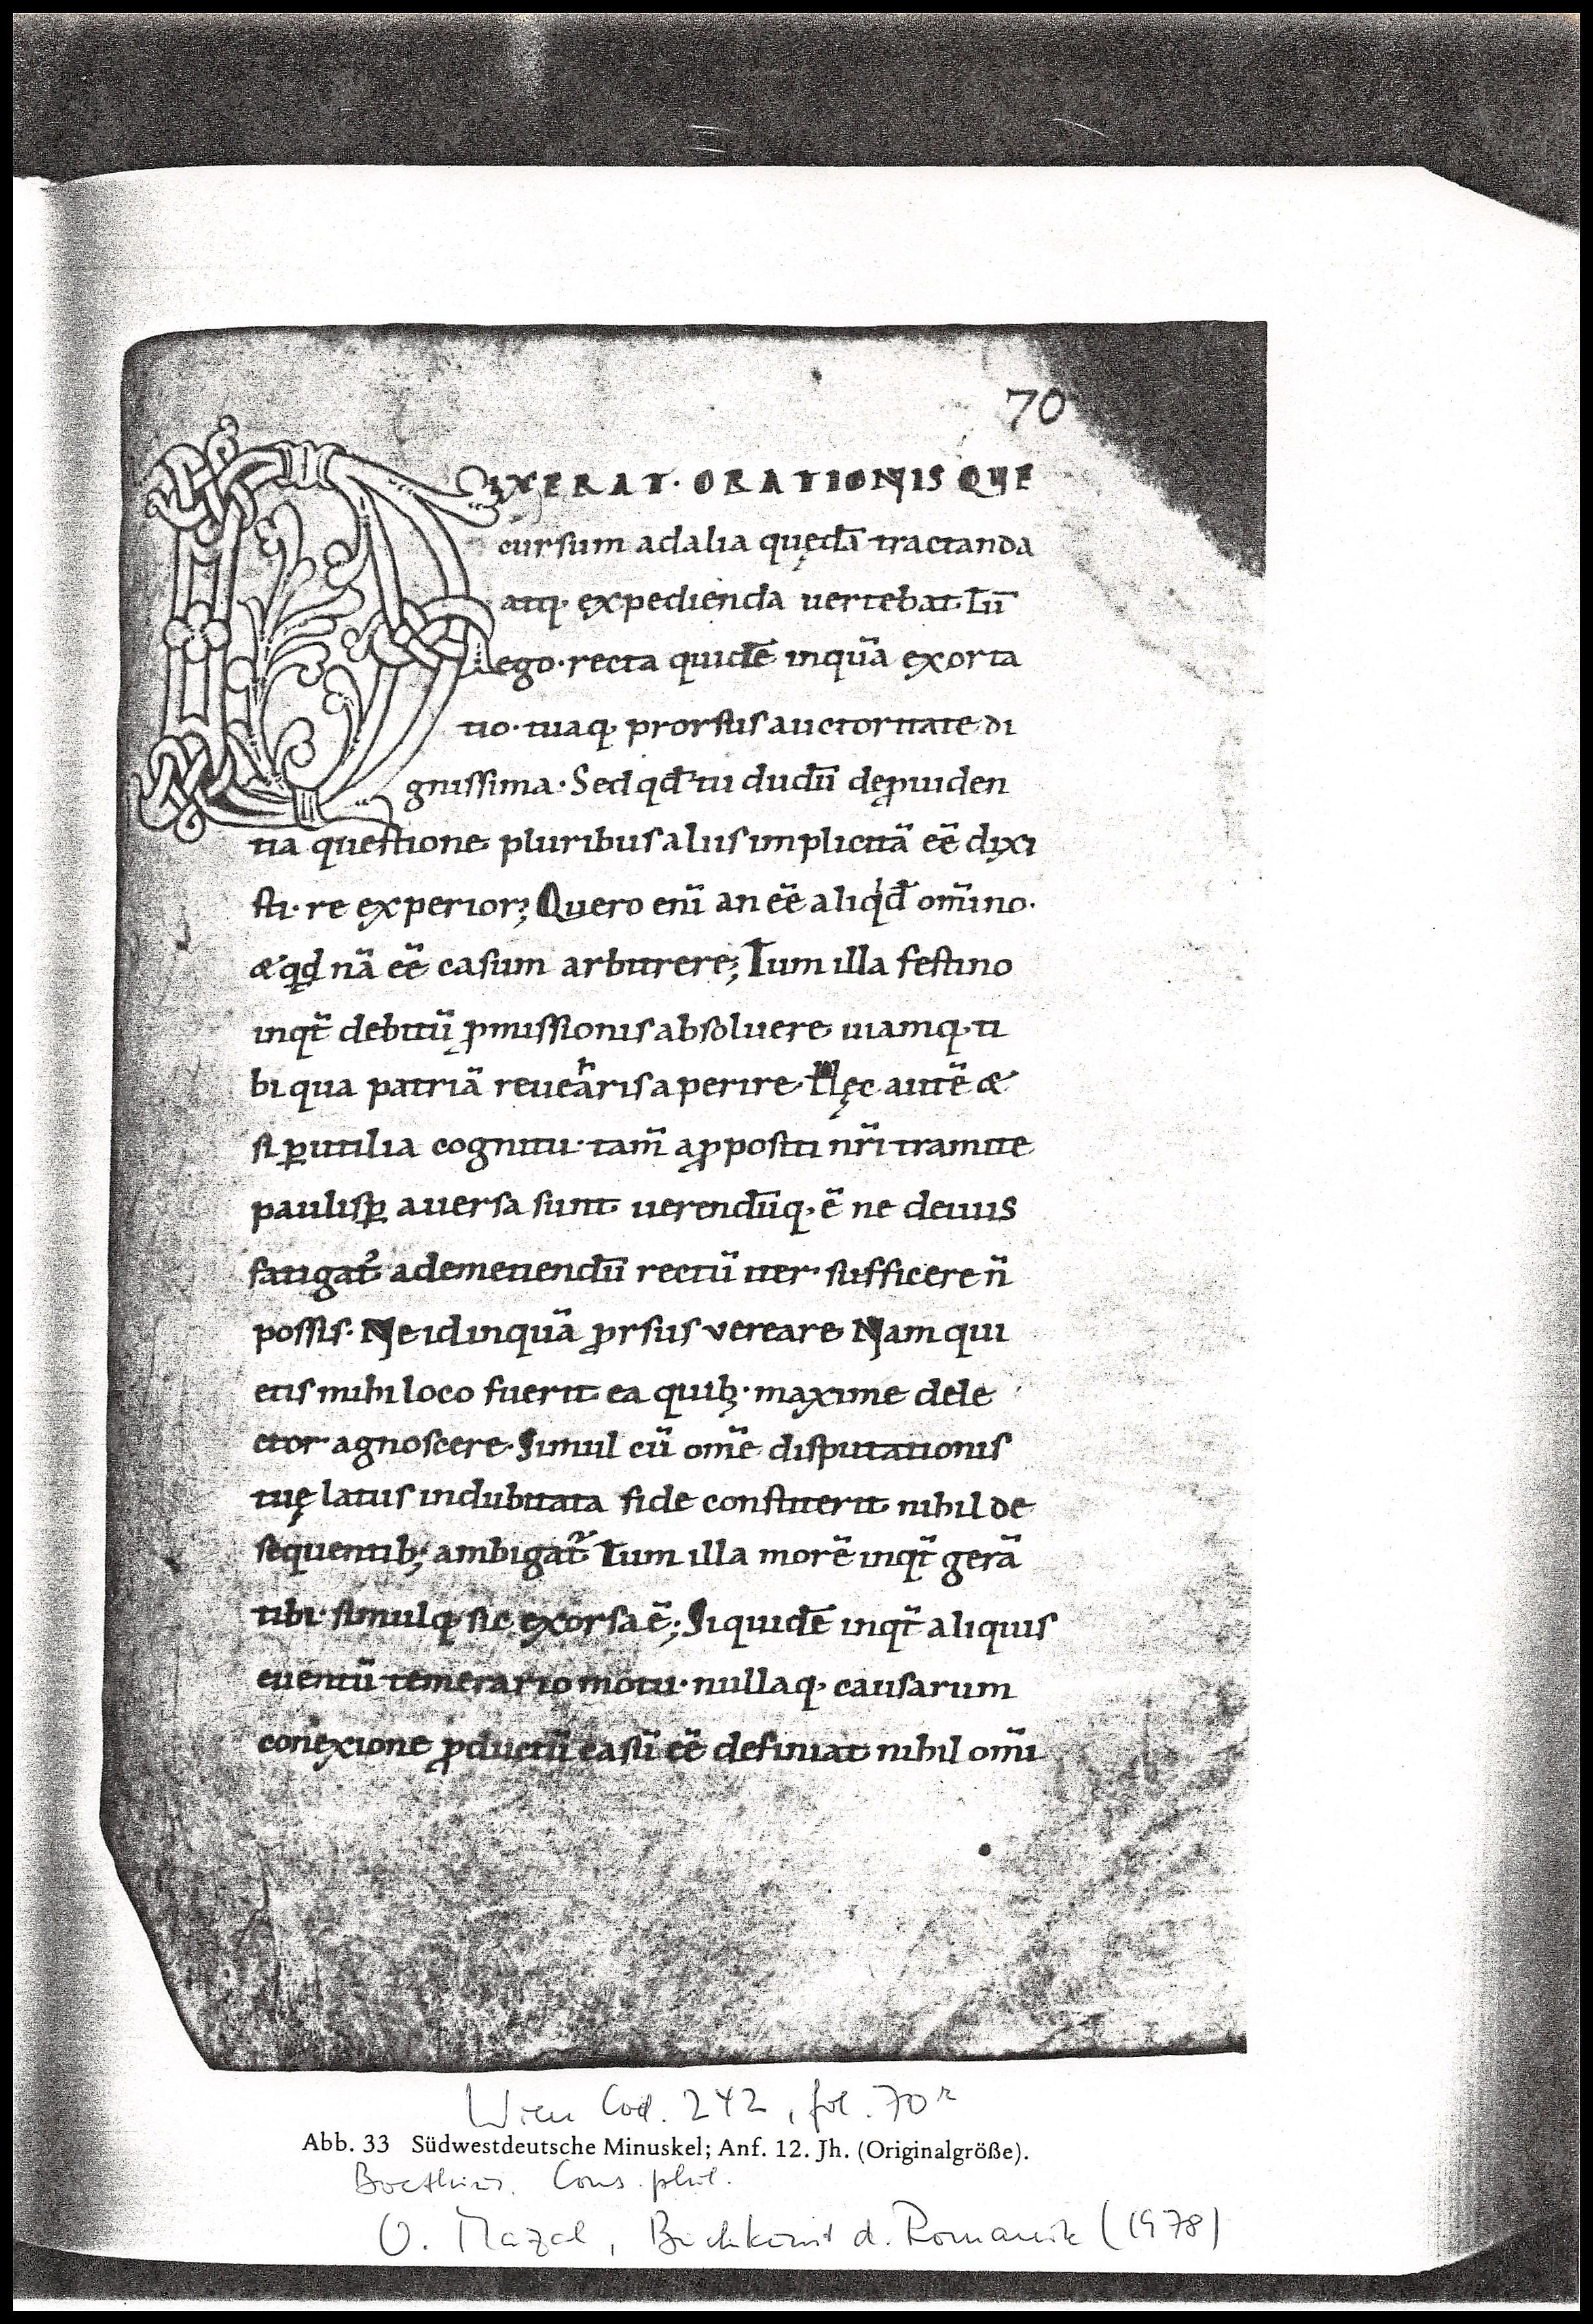 70
DIXERAT· ORATIONISQUE
cursum adalia quędā tractanda
atq· expedienda uertebat Tū
ego· recta quidē inquā exorta
tio· tuaq· prorsus auctoritate di
gnissima· Sed qđ tu dudū deꝓuiden
tia questione pluribus aliis implicitā eē dixi
sti· re experior; Quero enī an eē aliqđ om̄ino·
& qđ nā eē casum arbitrere; Tum illa festino
inqt̄ debitū ꝓmissionis absoluere uiamq· ti
bi qua patriā reueāris aperire· Hęc autē &
si ꝑutilia cognitu· tam̄ a ꝓpositi nr̄i tramite
paulisꝑ auersa sunt uerendūq· ē ne deuiis
fatigat᷒ ademetiendū rectū iter· sufficere n̄
possis· Ne id inquā ꝓrsus vereare Nam qui
etis mihi loco fuerit ea quib;· maxime dele
ctor agnoscere· Simul cū om̄e disputationis
tuę latus indubitata fide constiterit nihil de
sequentib; ambigat᷒ Tum illa morē inqt̄ gerā
tibi· simulq· sic exorsa ē; Siquidē inqt̄ aliquis
euentū temerario motu· nullaq· causarum
conexione ꝓductū casū eē definiat nihil om̄i
Wien Cod. 242, fol. 70r
Abb. 33 Südwestdeutsche Minuskel; Anf. 12. Jh. (Originalgröße).
Boethius. Cons. phil.
O. Mazal, Buchkunst d. Romanik (1978)